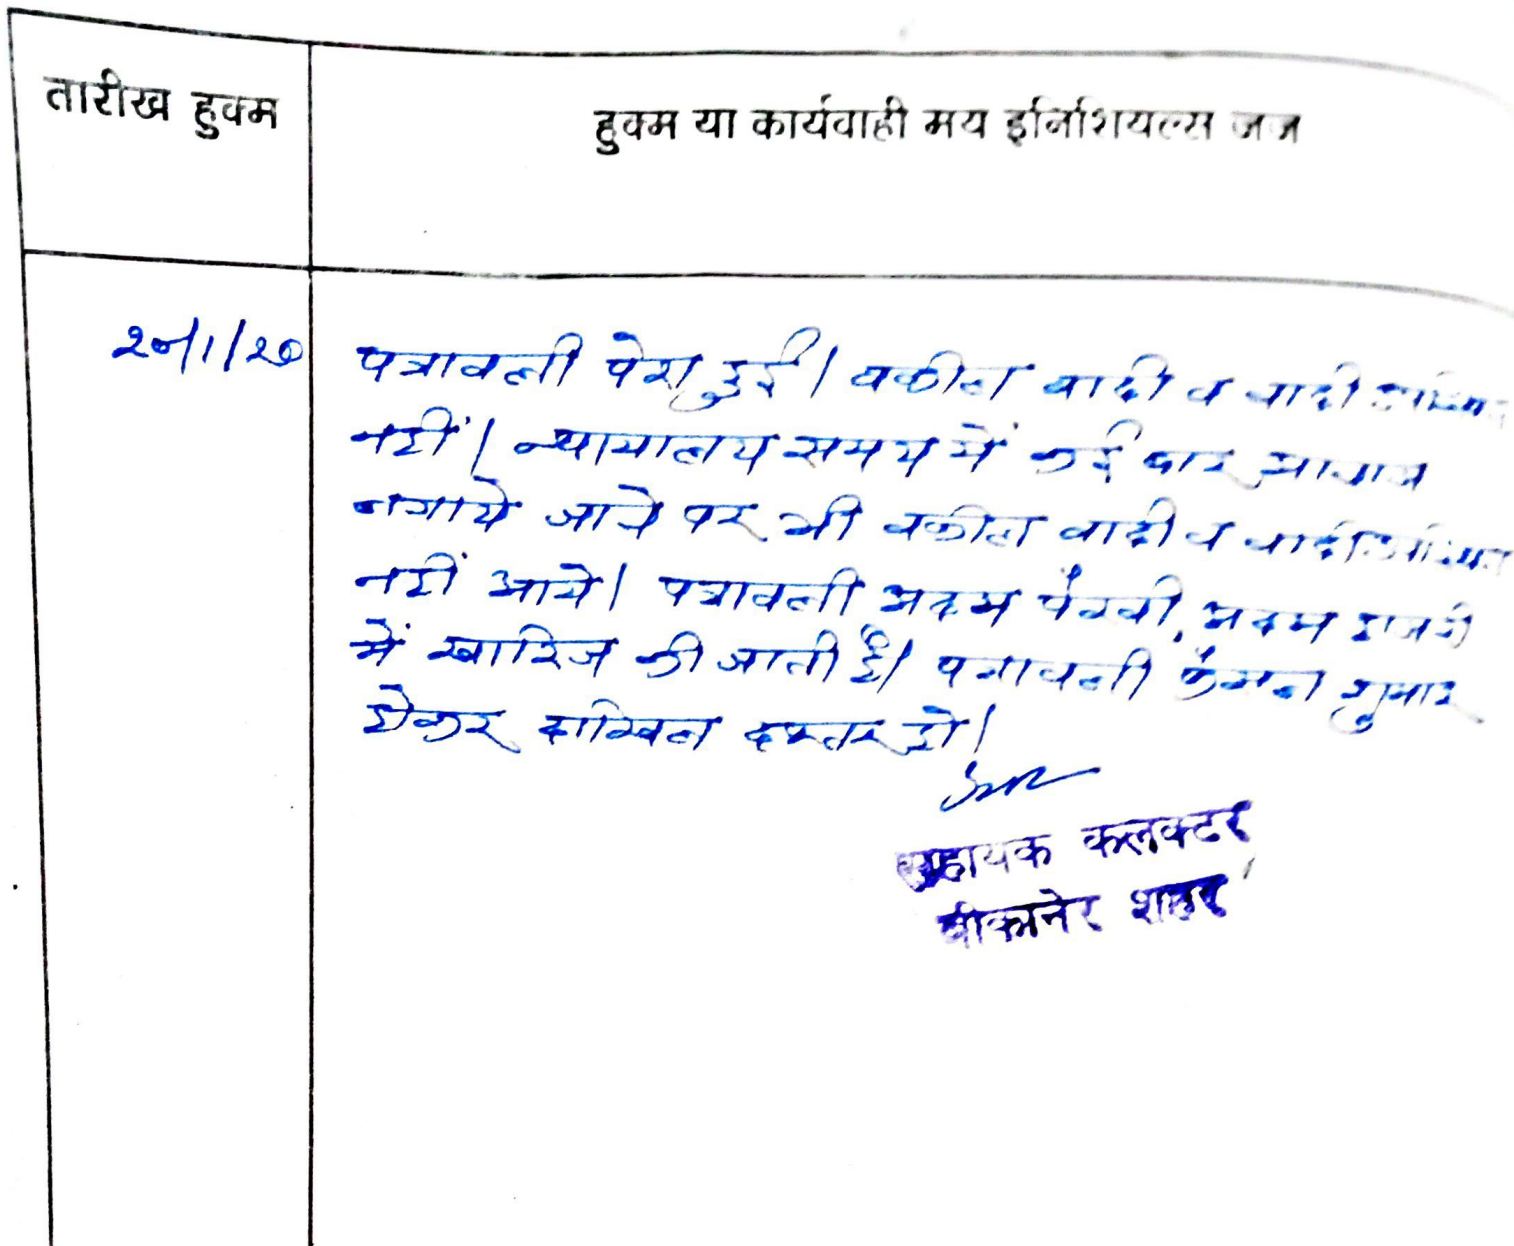 तारीख हुक्म
हुक्म या कार्यवाही मय इनिशियल्स जज
पत्रावली पेश हुई। वकील वादी व वादी उपस्थित
नहीं। न्यायालय समय में कई बार आवाज
लगाये जाने पर भी वकील वादी व वादी उपस्थित
नहीं आये। पत्रावली अदम पैरवी, अदम हाजरी
में खारिज की जाती है। पत्रावली फैसल शुमार
होकर दाखिल दफ्तर हो।
सहायक कलक्टर
बीकानेर शहर